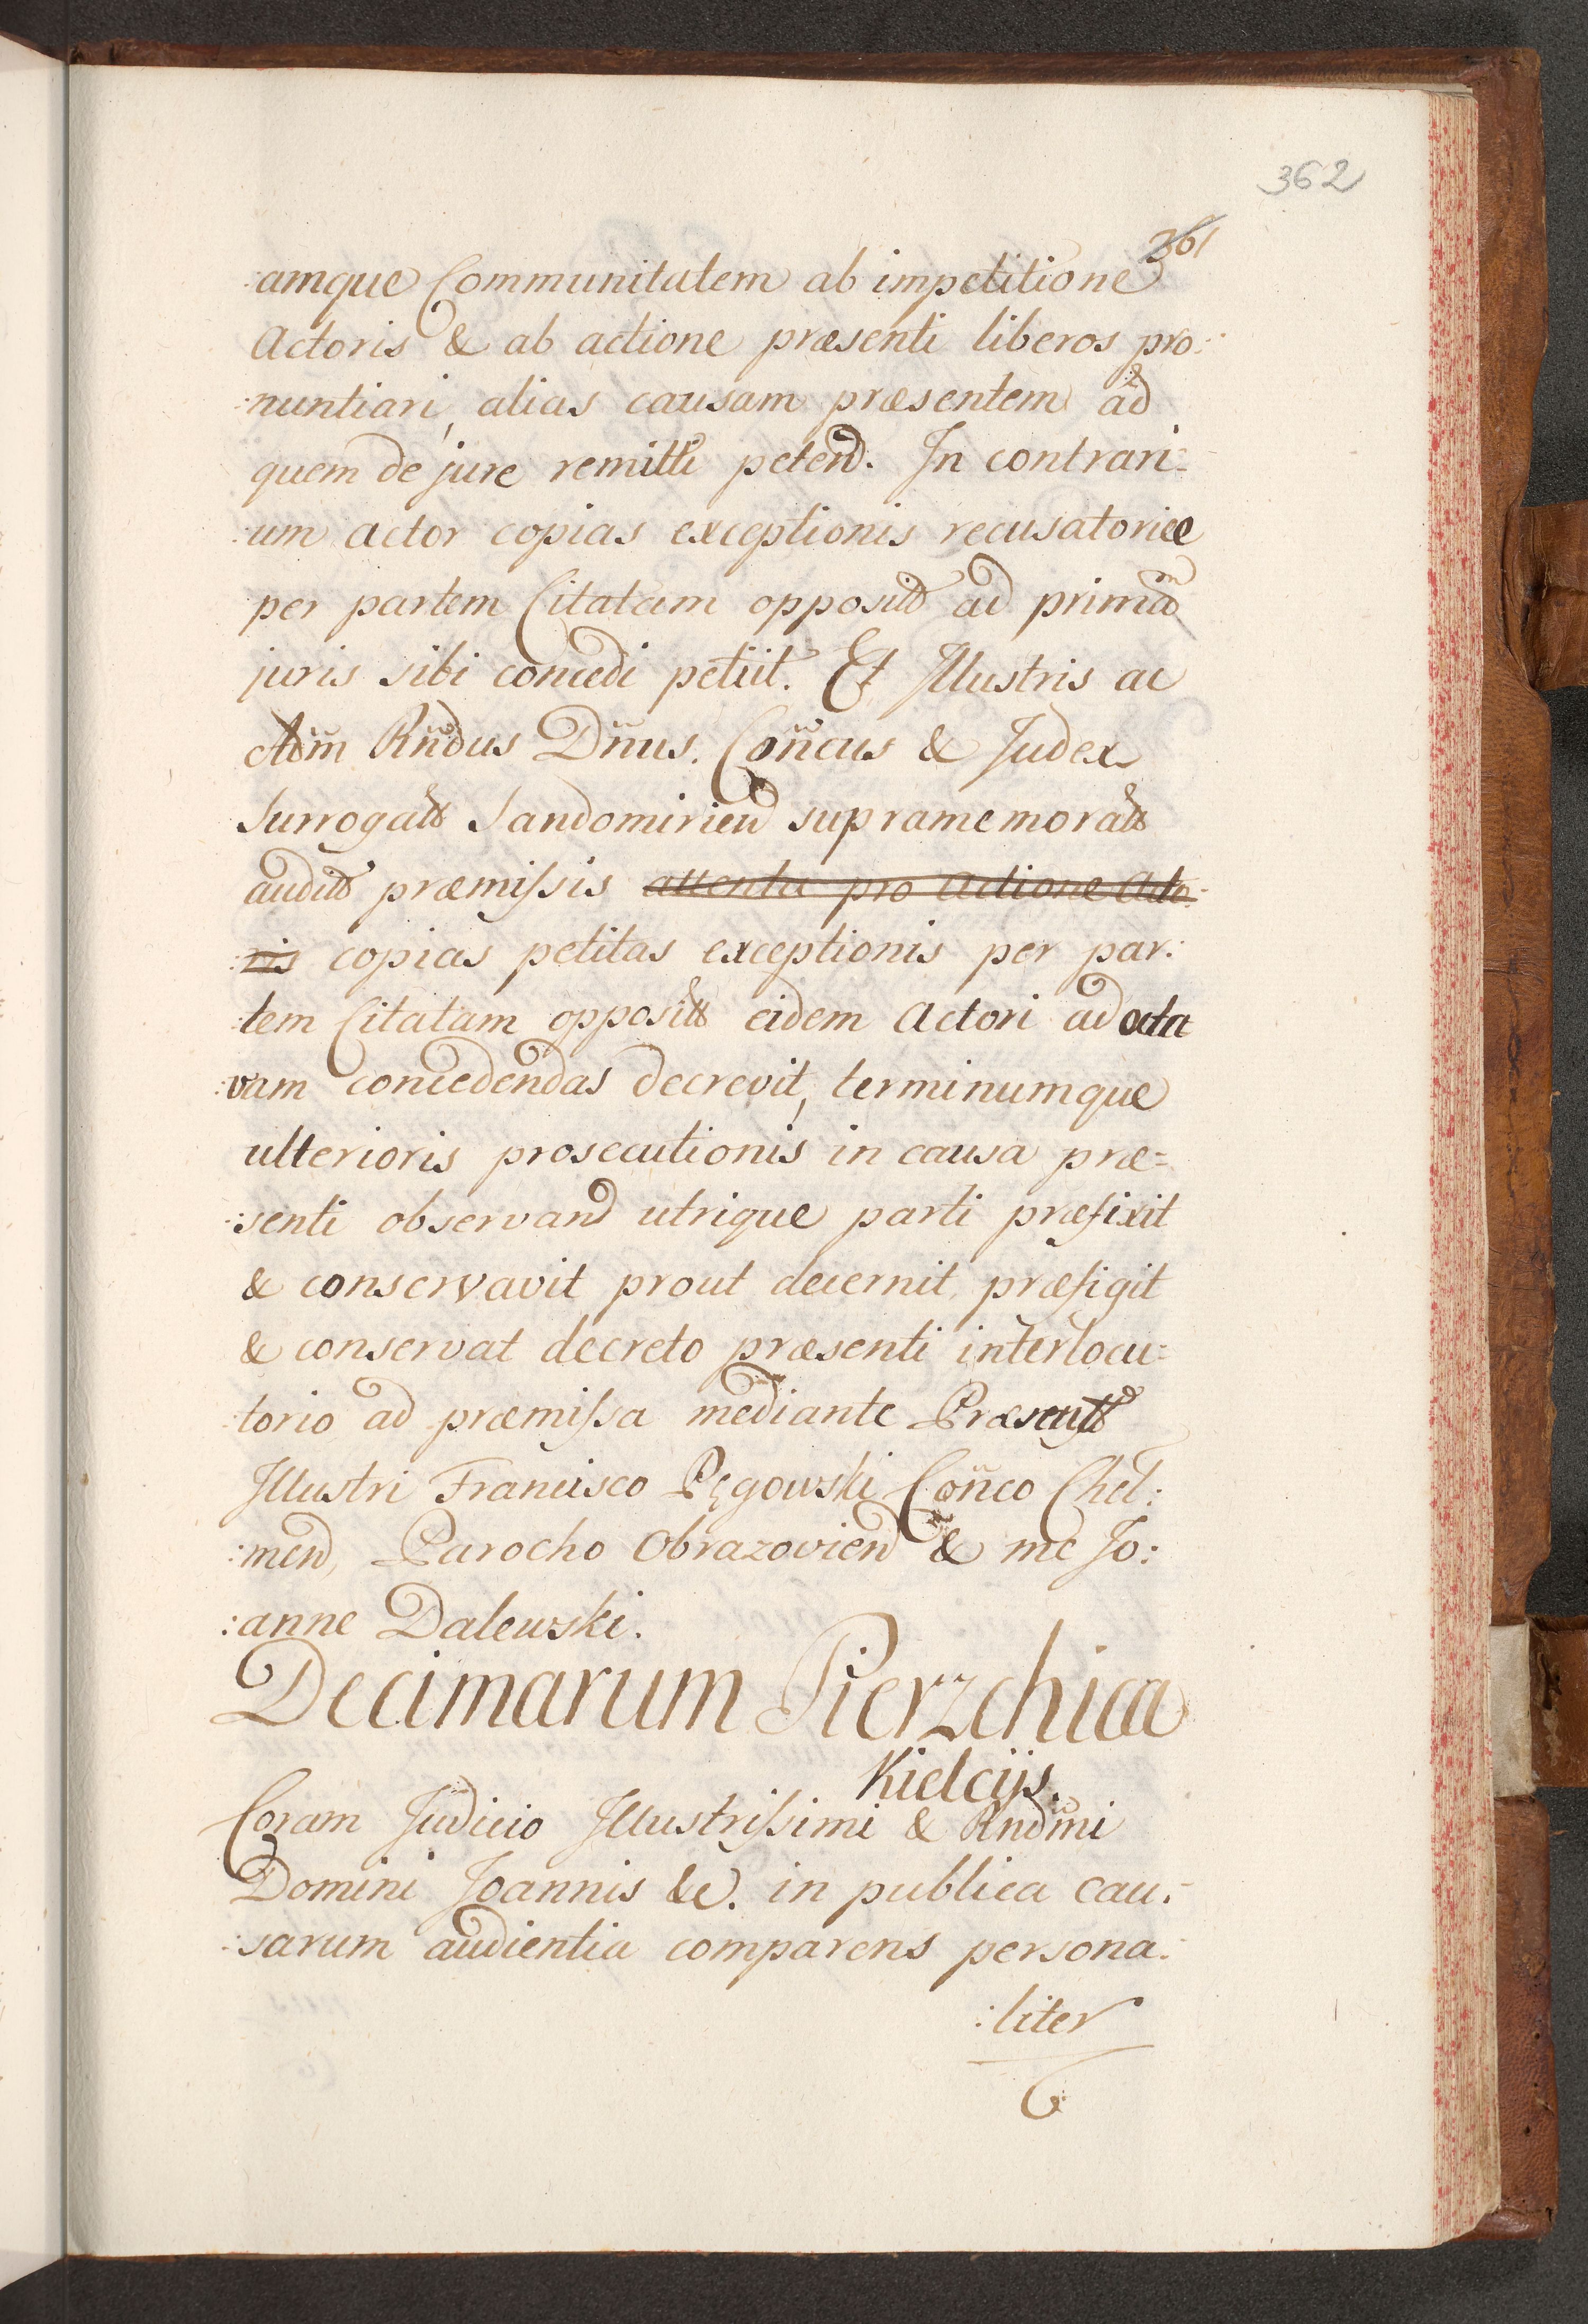 362
361
:amque Communitatem ab impetitione
Actoris & ab actione præsenti liberos pro:
:nuntiari, alias causam præsentem ad
quem de jure remitti petend. In contrari:
:um Actor copias exceptionis recusatoriæ
per partem Citatam opposit ad primam
juris sibi concedi petiit. Et Illustris ac
Adm Rndus Dnus. Concus & Judex
Surrogatt Sandomirien suprame moratt
audit præmissis attenta pro Actione Acto:
:ris copias petitas exceptionis per par:
:tem Citatam opposit eidem Actori ad octa
:vam concedendas decrevit, terminumque
ulterioris prosecutionis in causa præ=
:senti observand utrique parti præfixit
& conservavit prout decernit, præfigit
& conservat decreto præsenti interlocu=
:torio ad præmissa mediante Præsentt
Illustri Francisco Pęgowski Conco Chel:
:men, Parocho Obrazovien & me Jo:
:anne Dalewski.
Decimarum Pierzchica
Kielcijs.
Coram Judicio Illustrissimi & Rndmi
Domini Joannis &c. in publica cau:
:sarum audientia comparens persona:
:liter